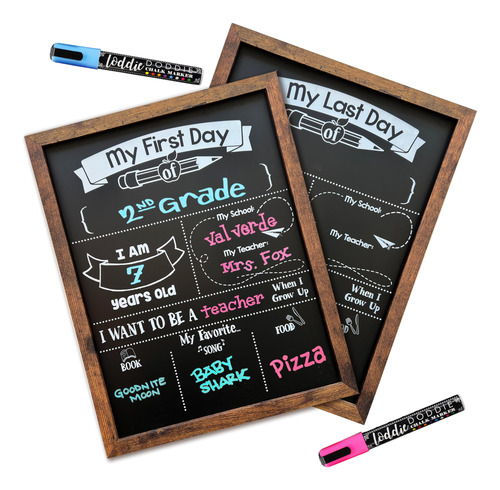 Loddie DODDIE
CHALK MARKER
My First Day
of
2ND Grade
I AM
7
years OLD
My School:
Val verde
My Teacher:
Mrs. Fox
I WANT TO BE A teacher When I
Grow Up
My Favorite...
BOOK
GOODNITE
MOON
SONG
BABY
SHARK
FOOD
Pizza
My Last Day
of
My School:
My Teacher:
When I
Grow Up
FOOD
Loddie DODDIE
CHALK MARKER